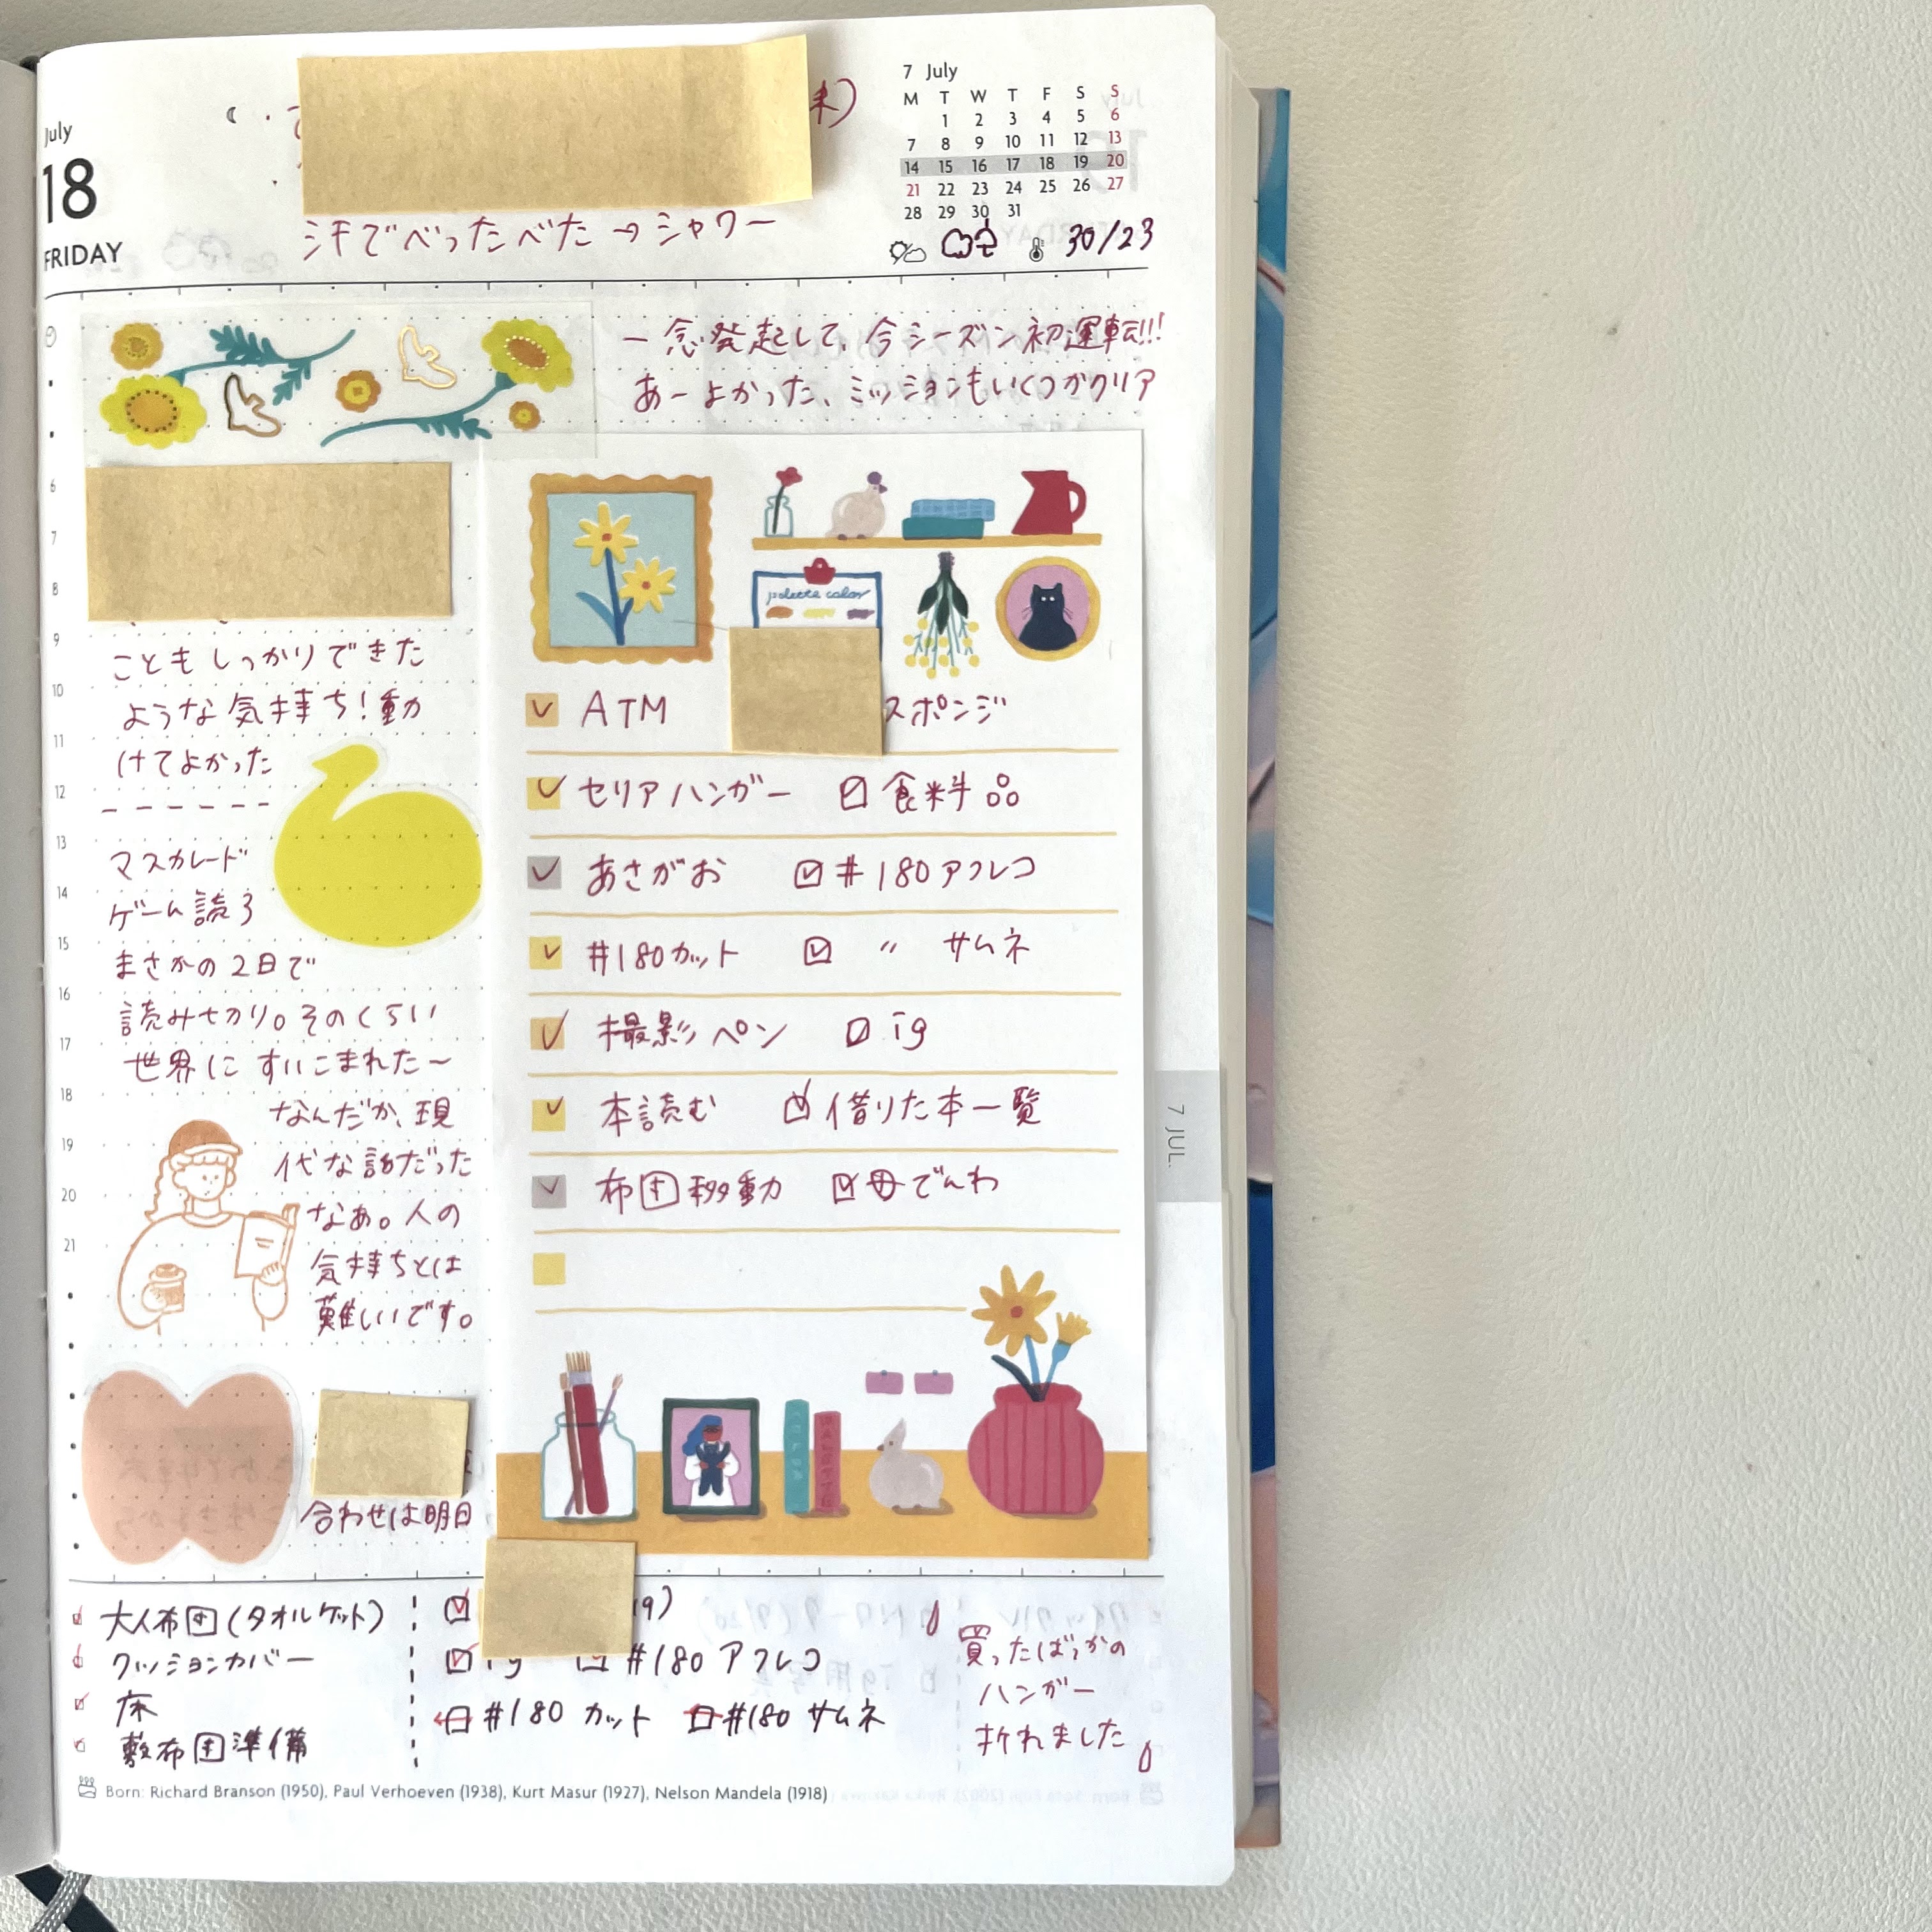 July
18
FRIDAY
汗でべったべた→シャワー
7 July
M T W T F S S
1 2 3 4 5 6
7 8 9 10 11 12 13
14 15 16 17 18 19 20
21 22 23 24 25 26 27
28 29 30 31
30/23
一念発起して、今シーズン初運転!!!
あーよかった、ミッションもいくつかクリア
6
7
8
9
10
11
12
13
14
15
16
17
18
19
20
21
こともしっかりできた
ような気持ち!動
けてよかった
マスカレード
ゲーム読了
まさかの2日で
読みセカり。そのくらい
世界にすいこまれた〜
なんだか、現
代な話だった
なぁ。人の
気持ちとは
難しいです。
合わせは明日
palette color
ATM スポンジ
セリアハンガー 食料品
あさがお #180アフレコ
#180カット 〃 サムネ
撮影ペン ig
本読む 借りた本一覧
布団移動 母でんわ
7 JUL.
大人布団(タオルケット)
クッションカバー
床
敷布団準備
ig #180 アフレコ
#180 カット #180 サムネ
買ったばっかの
ハンガー
折れました
Born: Richard Branson (1950), Paul Verhoeven (1938), Kurt Masur (1927), Nelson Mandela (1918)